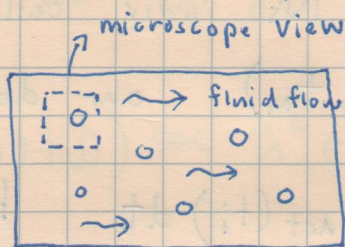 microscope view
fluid flow